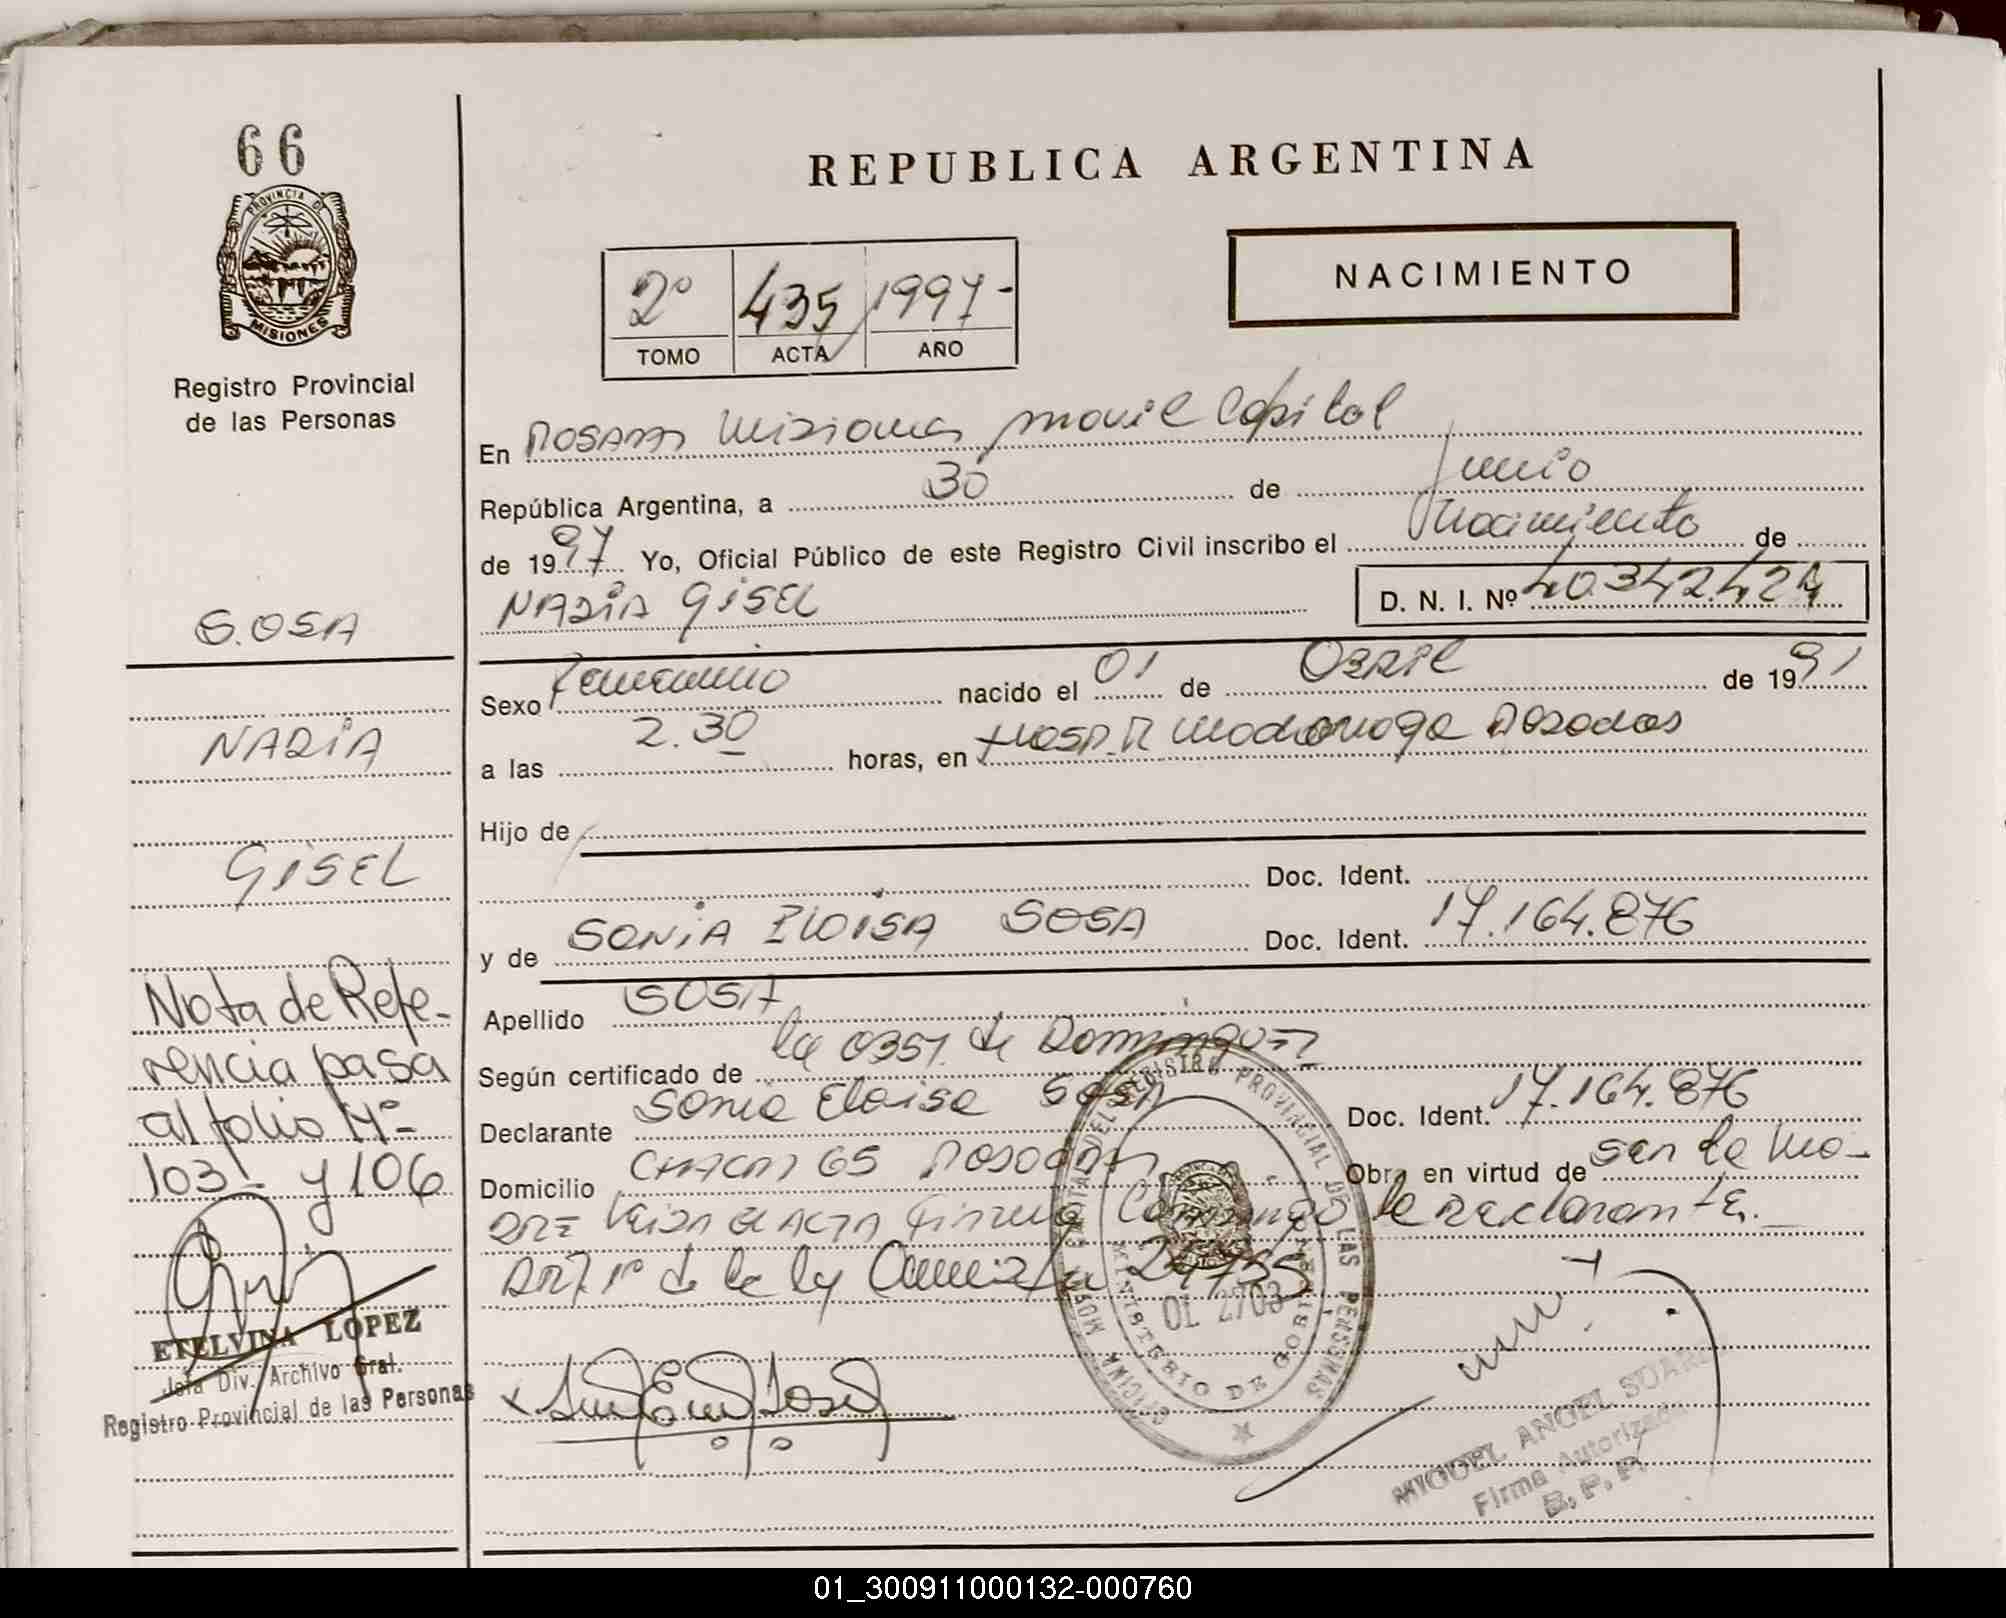 66
REPUBLICA ARGENTINA
PROVINCIA DE
MISIONES
Registro Provincial
de las Personas
NACIMIENTO
2º 435 1997-
TOMO ACTA AÑO
En Posadas Misiones movil Capital
República Argentina, a 30 de Junio
de 1997 Yo, Oficial Público de este Registro Civil inscribo el Nacimiento de
NADIA GISEL D. N. I. Nº 40.342.424
SOSA
Sexo Femenino nacido el 01 de ABRIL de 1991
NADIA
a las 2.30 horas, en Hosp. R Madariaga Posadas
Hijo de
GISEL
Doc. Ident.
y de SONIA ELOISA SOSA Doc. Ident. 17.164.876
Apellido SOSA
Según certificado de la Obst. de Dominguez
Declarante Sonia Eloisa SOSA Doc. Ident. 17.164.876
Domicilio CHACRA 65 Posadas Obra en virtud de ser la ma-
DRE Leida el ACTA Firma Conmigo la declarante.
ART. 1º de la ley 24755
Nota de Refe-
rencia pasa
al folio Nº
103 y 106
ETELVINA LOPEZ
Jefa Div. Archivo Gral.
Registro Provincial de las Personas
REGISTRO PROVINCIAL DE LAS PERSONAS
MINISTERIO DE GOBIERNO
OL 2703
MIGUEL ANGEL SUAREZ
Firma Autorizada
R. P. P.
01_300911000132-000760